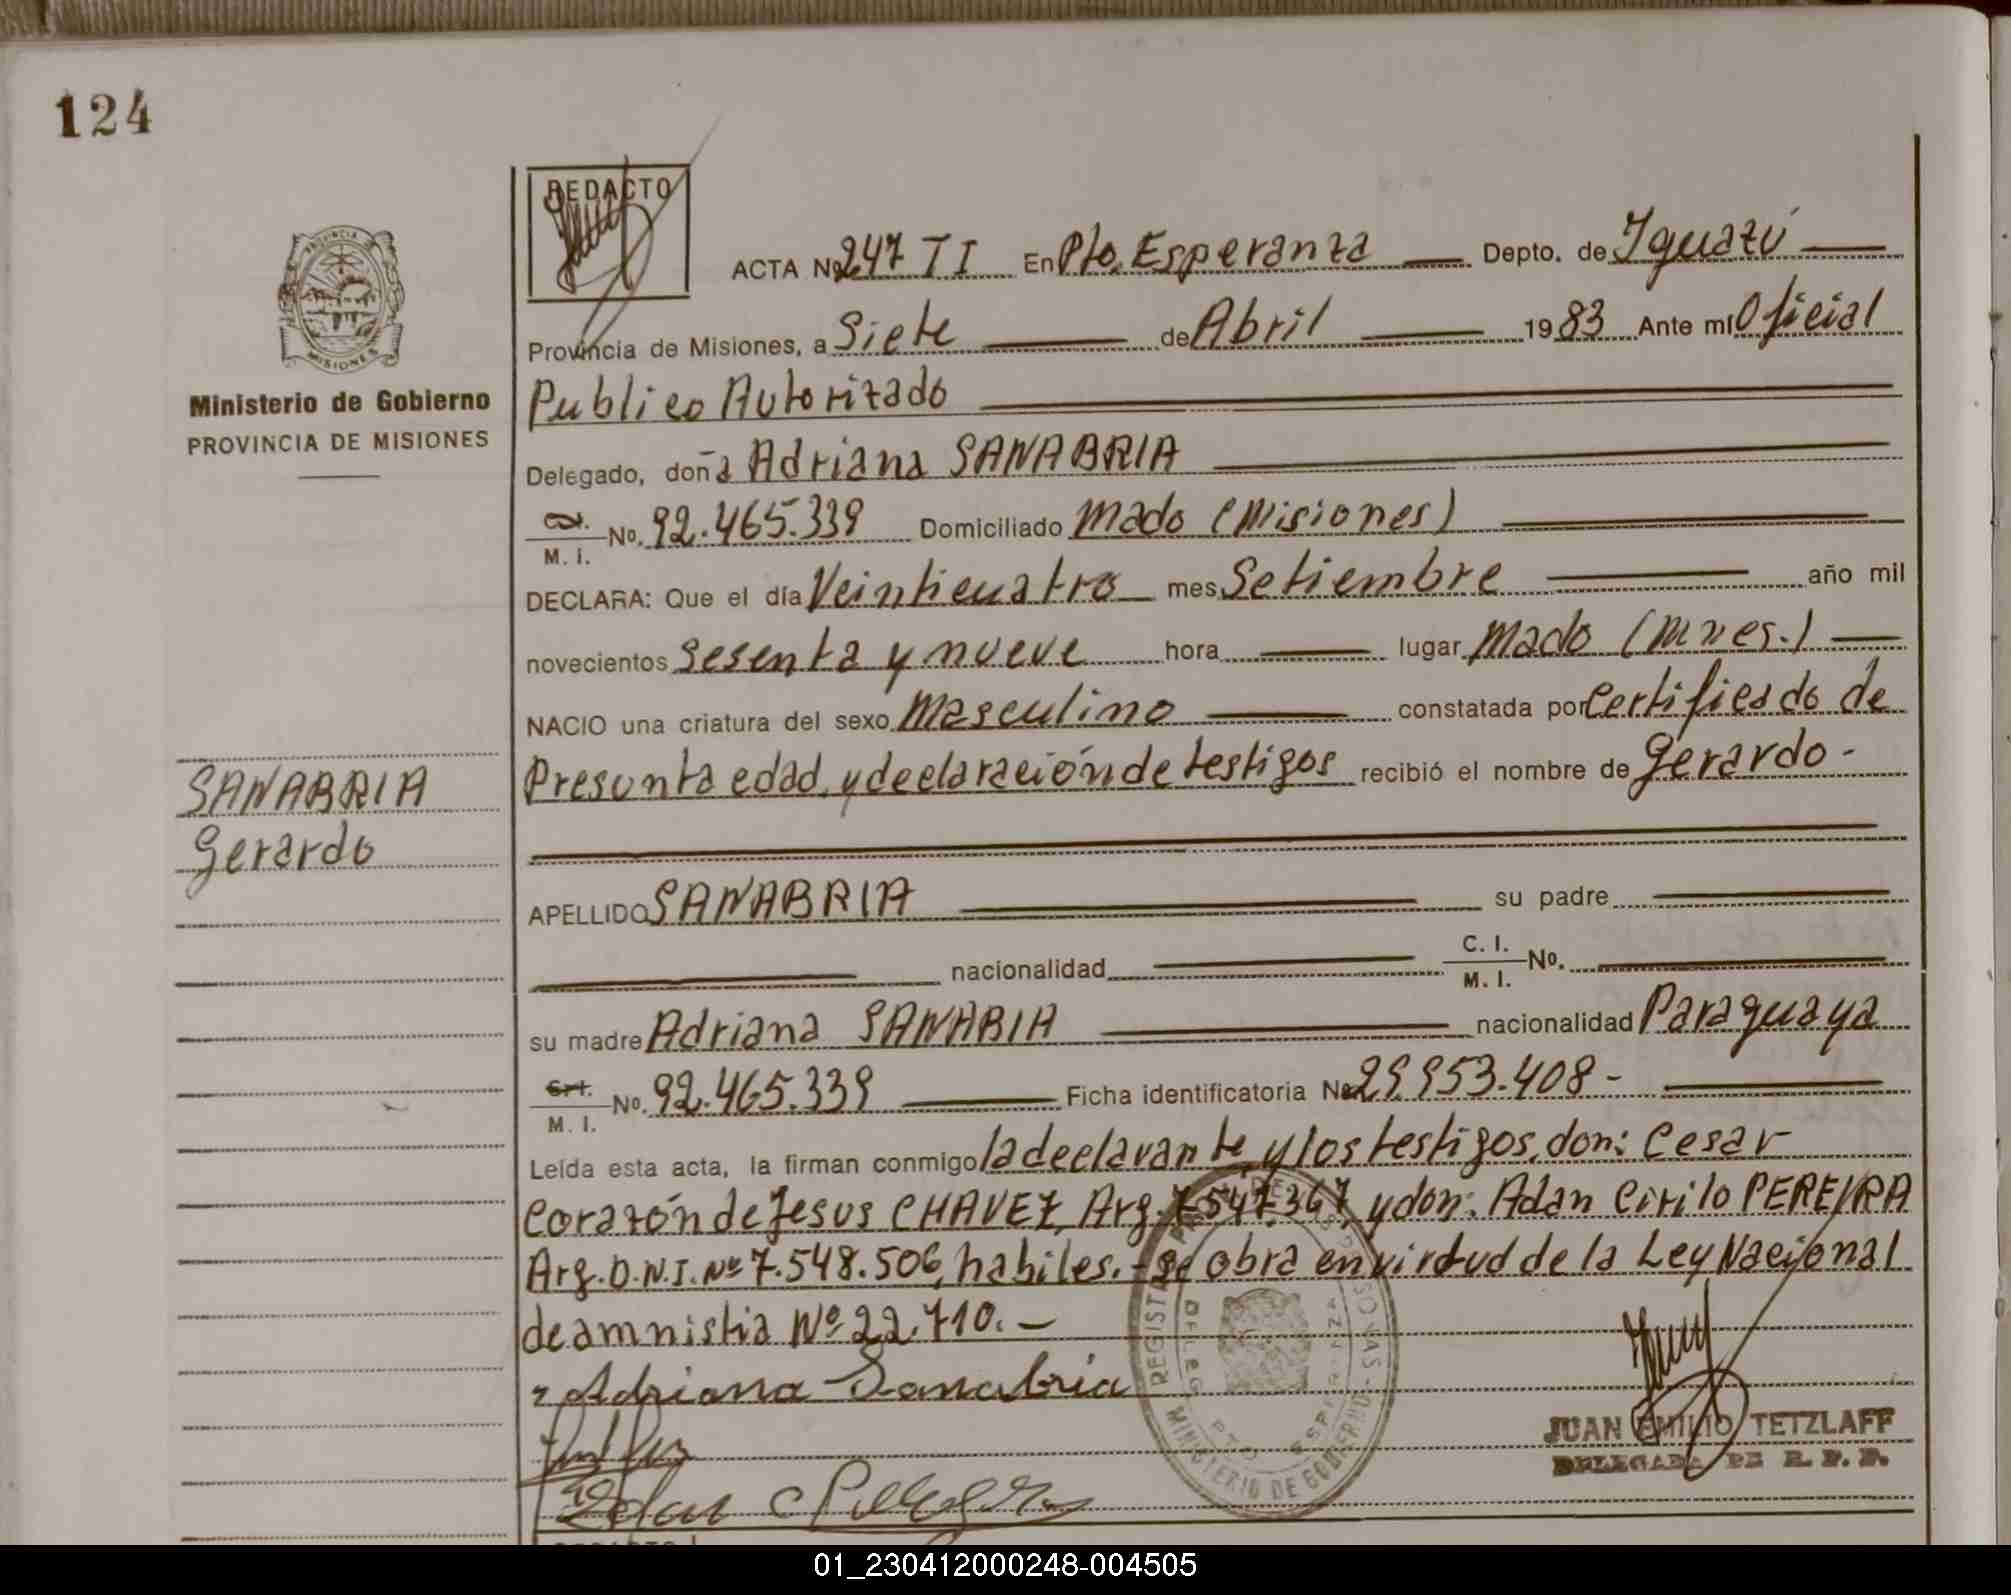 124
REDACTO
ACTA No 247 TI En Pto. Esperanza Depto. de Iguazú
Provincia de Misiones, a Siete de Abril 1983 Ante mí Oficial
PROVINCIA DE
MISIONES
Ministerio de Gobierno
PROVINCIA DE MISIONES
Publico Autorizado
Delegado, doña Adriana SANABRIA
M. I. No. 92.465.339 Domiciliado Mado (Misiones)
DECLARA: Que el día Veinticuatro mes Setiembre año mil
novecientos sesenta y nueve hora lugar Mado (Mnes.)
NACIO una criatura del sexo Masculino constatada por Certificado de
Presunta edad, y declaración de testigos recibió el nombre de Gerardo -
SANABRIA
Gerardo
APELLIDO SANABRIA su padre
nacionalidad C. I. M. I. No.
su madre Adriana SANABIA nacionalidad Paraguaya
M. I. No. 92.465.339 Ficha identificatoria No 29.953.408-
Leída esta acta, la firman conmigo la declarante y los testigos, don: Cesar
Corazón de Jesus CHAVEZ, Arg. 7.547.367, y don: Adan Cirilo PEREIRA
Arg. D.N.I. Nº 7.548.506, habiles. - Se obra en virtud de la Ley Nacional
de amnistia Nº 22.710. -
Adriana Sanabria
MINISTERIO DE GOBIERNO
JUAN EMILIO TETZLAFF
DELEGADA DE R. P. P.
01_230412000248-004505